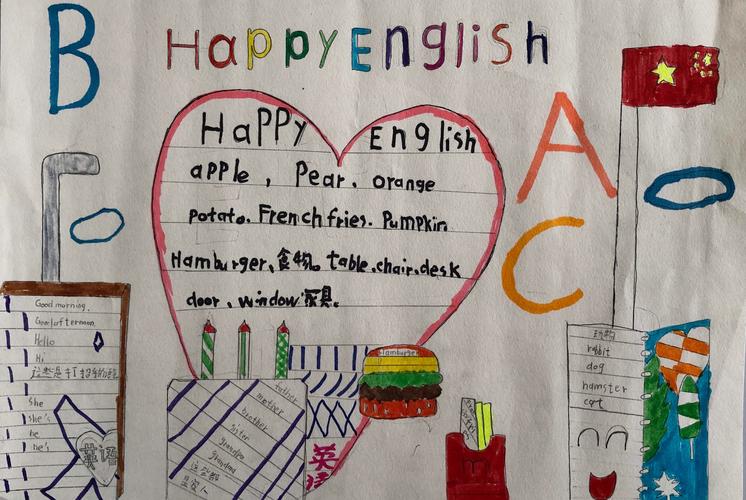 B
Happy English
A
C
Happy English
apple, Pear. orange
potato. French fries. Pumpkin
Hamburger、食物。table.chair.desk
door、window 家具。
Good morning.
Good afternoon
Hello
Hi
这些是打招呼的语
She
She's
he
he's
英语
father
mother
brother
sister
grandpa
grandma
这些都
是家人
Hamburger
英
语
动物
rabbit
dog
hamster
cat